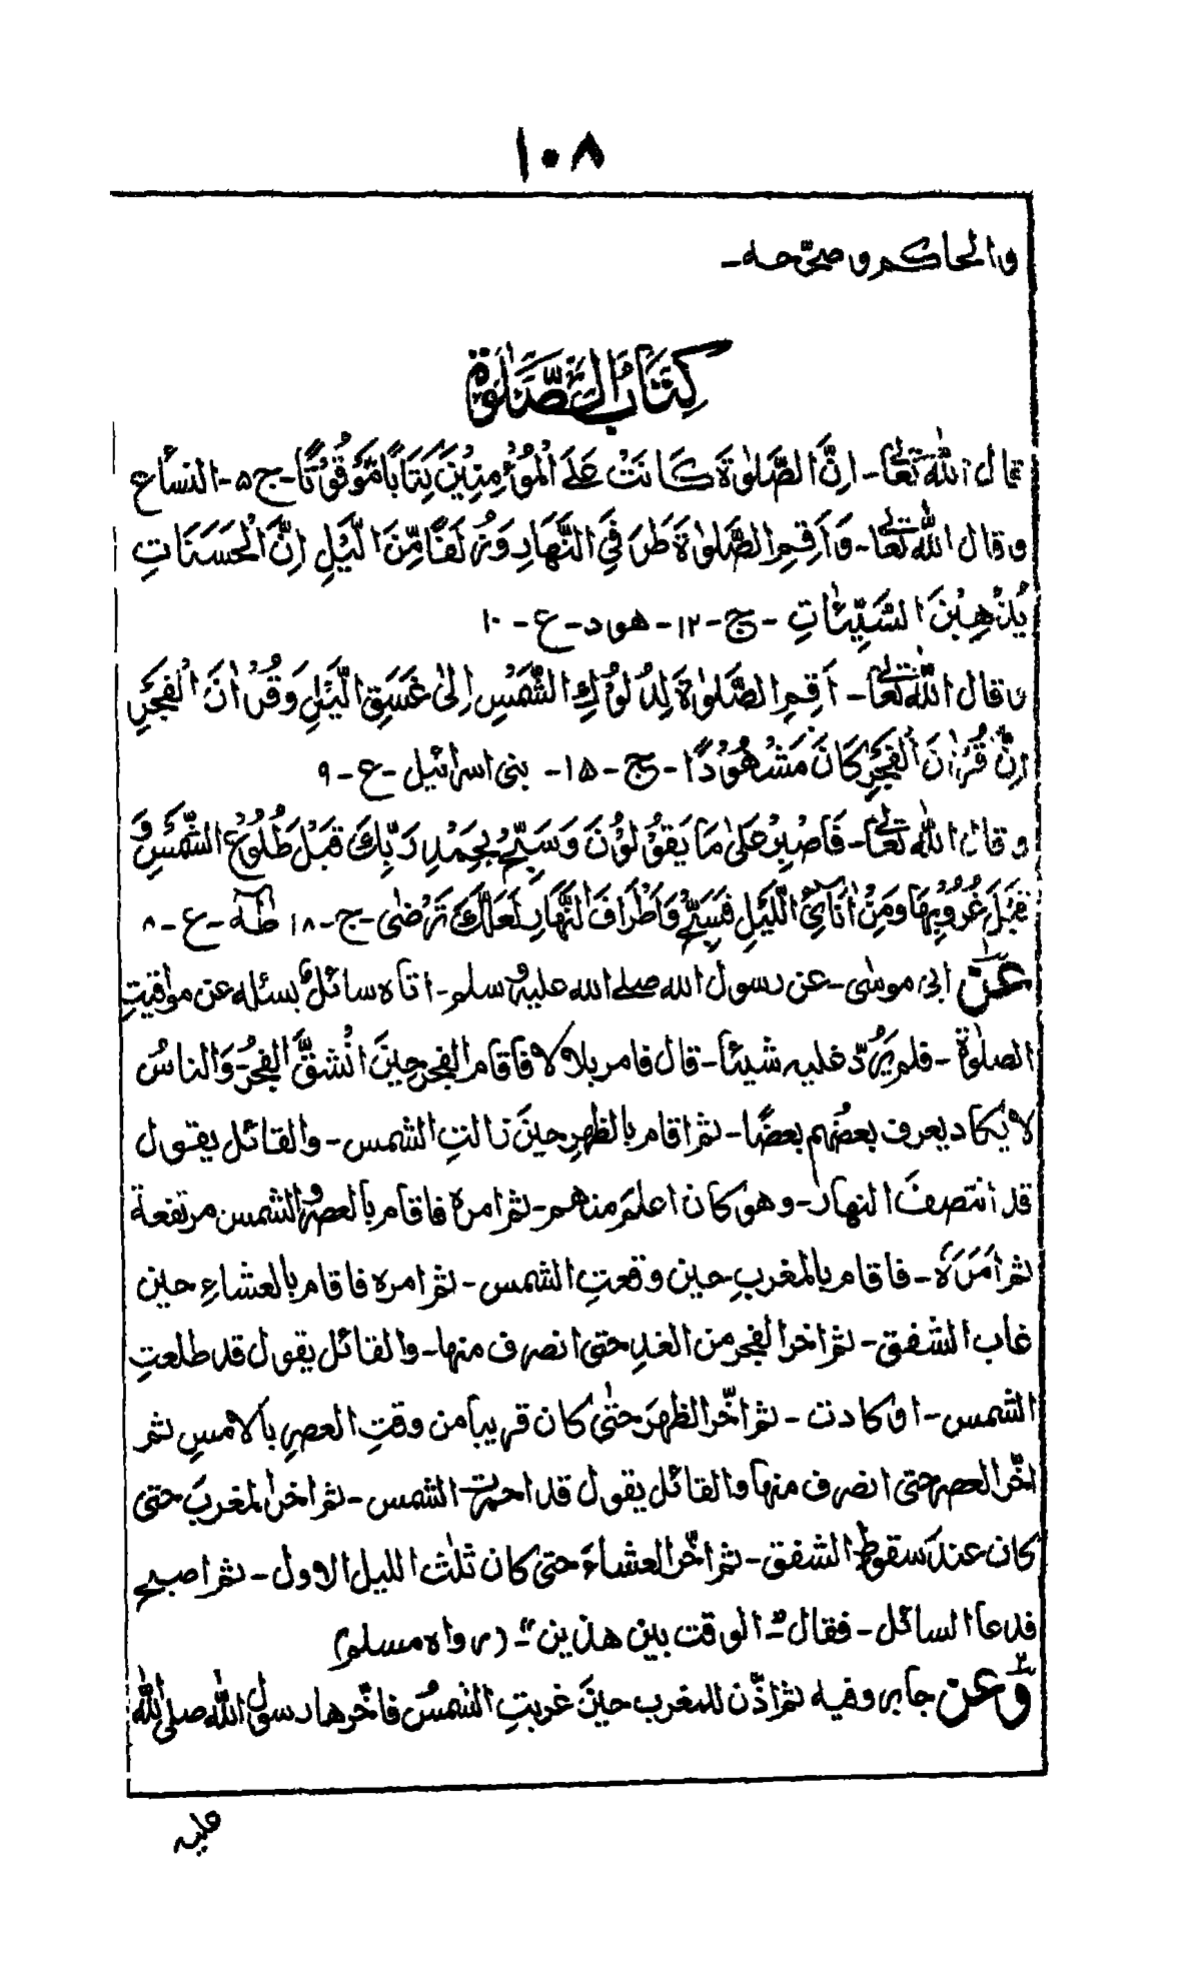 ١٠٨
والحاكم وصحّحه۔
كِتَابُ الصَّلٰوةِ
قال الله تعالٰى۔ اِنَّ الصَّلٰوةَ كَانَتْ عَلَى الْمُؤْمِنِيْنَ كِتَابًا مَّوْقُوْتًا۔ ج ۵۔ النساء ع
وقال الله تعالٰى۔ وَاَقِمِ الصَّلٰوةَ طَرَفَيِ النَّهَارِ وَزُلَفًا مِّنَ الَّيْلِ اِنَّ الْحَسَنَاتِ
يُذْهِبْنَ السَّيِّئٰاتِ۔ ج۔ ١٢۔ هود۔ ع۔ ١٠
وقال الله تعالٰى۔ اَقِمِ الصَّلٰوةَ لِدُلُوْكِ الشَّمْسِ اِلٰى غَسَقِ الَّيْلِ وَقُرْاٰنَ الْفَجْرِ
اِنَّ قُرْاٰنَ الْفَجْرِ كَانَ مَشْهُوْدًا۔ ج۔ ١۵۔ بنى اسرائيل۔ ع۔ ٩
وقال الله تعالٰى۔ فَاصْبِرْ عَلٰى مَا يَقُوْلُوْنَ وَسَبِّحْ بِحَمْدِ رَبِّكَ قَبْلَ طُلُوْعِ الشَّمْسِ وَ
قَبْلَ غُرُوْبِهَا وَمِنْ اٰنَآئِ الَّيْلِ فَسَبِّحْ وَاَطْرَافَ النَّهَارِ لَعَلَّكَ تَرْضٰى۔ ج۔ ١٨ طٰهٰ۔ ع۔ ٨
عن ابى موسٰى۔ عن رسول الله صلى الله عليه وسلم۔ اتاه سائلٌ يسئله عن مواقيتِ
الصلوٰة۔ فلم يَرُدّ عليه شيئا۔ قال فامر بلالا فاقام الفجر حِينَ انْشقَّ الفجرُ۔ وَالناسُ
لا يكاد يعرف بعضُهم بعضًا۔ ثم اقام بالظهرِ حينَ زالتِ الشمس۔ والقائل يقول
قد انتصفَ النهار۔ وهو كان اعلمَ منهم۔ ثم امره فاقام بالعصر والشمس مرتفعة
ثم اَمَرَهٗ۔ فاقام بالمغربِ حين وقعتِ الشمس۔ ثم امره فاقام بالعشاءِ حين
غاب الشفق۔ ثم اخر الفجر من الغدِ حتى انصرف منها۔ والقائل يقول قد طلعتِ
الشمس۔ او كادت۔ ثم اخّر الظهرَ حتٰى كان قريبا من وقتِ العصرِ بالامسِ ثم
اخّر العصر حتى انصرف منها والقائل يقول قد احمرت الشمس۔ ثم اخر المغربَ حتى
كان عندَ سقوط الشفق۔ ثم اخّر العشاءَ حتى كان ثلث الليل الاول۔ ثم اصبح
فدعا السائل۔ فقال "الوقت بين هذين"۔ (رواه مسلم)
وعن جابر وفيه ثم اذّن للمغرب حينَ غربتِ الشمسُ فاخّرها رسول الله صلى الله
عليه